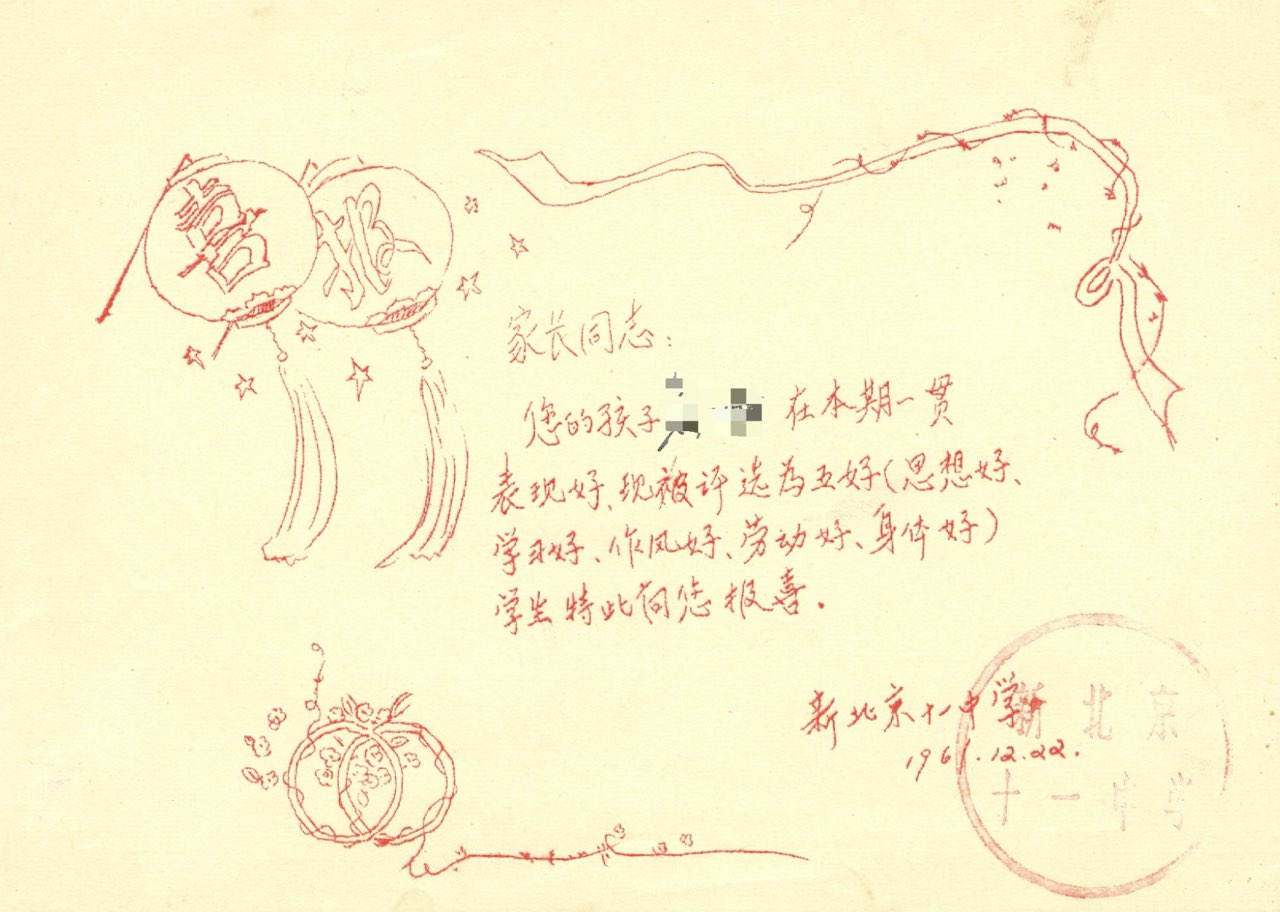 喜报
家长同志：
您的孩子 在本期一贯
表现好、现被评选为五好（思想好、
学习好、作风好、劳动好、身体好）
学生特此向您报喜.
新北京十一中学
1961.12.22.
新北京
十一中学